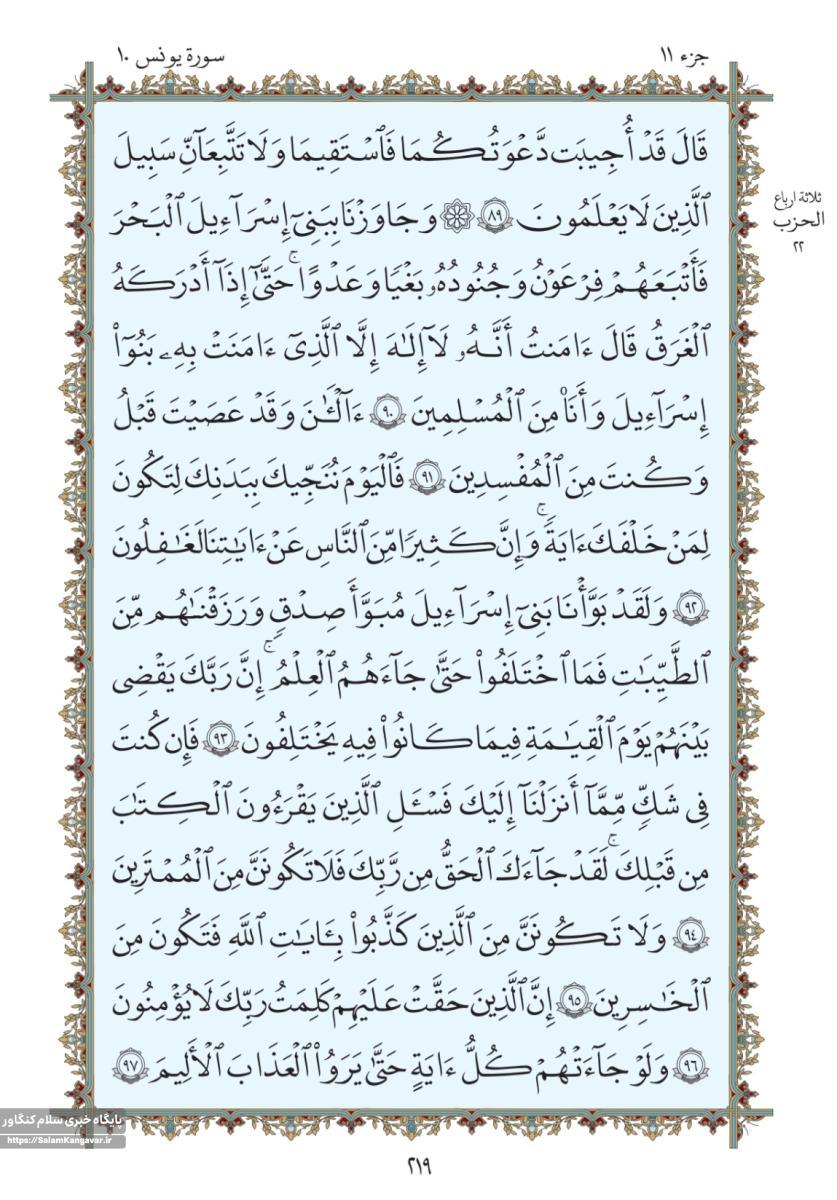 جزء ۱۱
سورة يونس ۱۰
قَالَ قَدْ أُجِيبَت دَّعْوَتُكُمَا فَٱسْتَقِيمَا وَلَا تَتَّبِعَآنِّ سَبِيلَ
ٱلَّذِينَ لَا يَعْلَمُونَ ۝٨٩ ۞ وَجَاوَزْنَا بِبَنِىٓ إِسْرَآءِيلَ ٱلْبَحْرَ
فَأَتْبَعَهُمْ فِرْعَوْنُ وَجُنُودُهُۥ بَغْيًا وَعَدْوًا ۖ حَتَّىٰٓ إِذَآ أَدْرَكَهُ
ٱلْغَرَقُ قَالَ ءَامَنتُ أَنَّهُۥ لَآ إِلَٰهَ إِلَّا ٱلَّذِىٓ ءَامَنَتْ بِهِۦ بَنُوٓا۟
إِسْرَآءِيلَ وَأَنَا۠ مِنَ ٱلْمُسْلِمِينَ ۝٩٠ ءَآلْـَٰٔنَ وَقَدْ عَصَيْتَ قَبْلُ
وَكُنتَ مِنَ ٱلْمُفْسِدِينَ ۝٩١ فَٱلْيَوْمَ نُنَجِّيكَ بِبَدَنِكَ لِتَكُونَ
لِمَنْ خَلْفَكَ ءَايَةً ۚ وَإِنَّ كَثِيرًا مِّنَ ٱلنَّاسِ عَنْ ءَايَٰتِنَا لَغَٰفِلُونَ
۝٩٢ وَلَقَدْ بَوَّأْنَا بَنِىٓ إِسْرَآءِيلَ مُبَوَّأَ صِدْقٍ وَرَزَقْنَٰهُم مِّنَ
ٱلطَّيِّبَٰتِ فَمَا ٱخْتَلَفُوا۟ حَتَّىٰ جَآءَهُمُ ٱلْعِلْمُ ۚ إِنَّ رَبَّكَ يَقْضِى
بَيْنَهُمْ يَوْمَ ٱلْقِيَٰمَةِ فِيمَا كَانُوا۟ فِيهِ يَخْتَلِفُونَ ۝٩٣ فَإِن كُنتَ
فِى شَكٍّ مِّمَّآ أَنزَلْنَآ إِلَيْكَ فَسْـَٔلِ ٱلَّذِينَ يَقْرَءُونَ ٱلْكِتَٰبَ
مِن قَبْلِكَ ۚ لَقَدْ جَآءَكَ ٱلْحَقُّ مِن رَّبِّكَ فَلَا تَكُونَنَّ مِنَ ٱلْمُمْتَرِينَ
۝٩٤ وَلَا تَكُونَنَّ مِنَ ٱلَّذِينَ كَذَّبُوا۟ بِـَٔايَٰتِ ٱللَّهِ فَتَكُونَ مِنَ
ٱلْخَٰسِرِينَ ۝٩٥ إِنَّ ٱلَّذِينَ حَقَّتْ عَلَيْهِمْ كَلِمَتُ رَبِّكَ لَا يُؤْمِنُونَ
۝٩٦ وَلَوْ جَآءَتْهُمْ كُلُّ ءَايَةٍ حَتَّىٰ يَرَوُا۟ ٱلْعَذَابَ ٱلْأَلِيمَ ۝٩٧
ثلاثة ارباع
الحزب
۲۲
پایگاه خبری سلام کنگاور
https://SalamKangavar.ir
۲۱۹